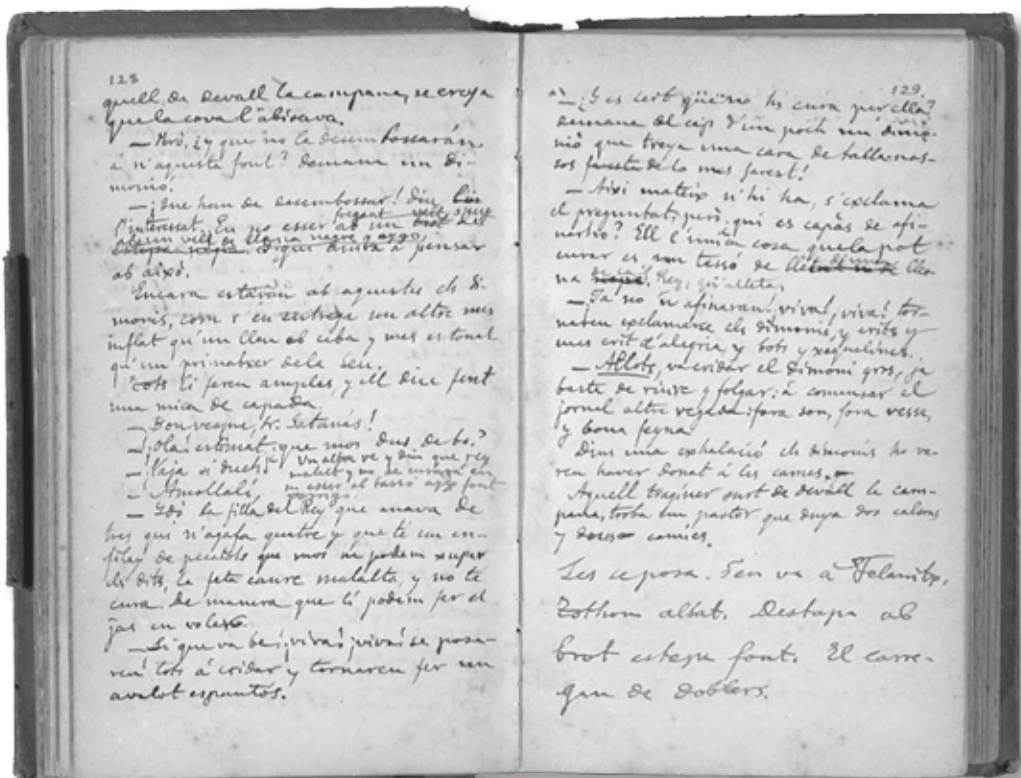 128
quell de devall la campana, se creya
que la cova l'abisava.
— Però, ¿y que no la desembossarán
á n'aquesta font? demana un di-
moni.
— ¡Que han de desembossar! diu
l'interessat. En no esser ab un
fregant
algun vell de
negre y aygo,
estepa negre. ¿Y qui arriba á pensar
ab aixó.
Encara estavan ab aquestes els di-
monis, com s'en entrega un altre mes
inflat qu'un lleu ab ceba y mes estonat
qu'un primatxer de la Seu.
Tots li feren amples, y ell dice fent
una mica de capada.
— Bon vespre, Sr. Satanás!
— ¡Olá! estimat, que mos dus de bo?
— ¡Vaja si duch!
Un altre ve y diu que rey
malalt y no se curará en
no esser ab tassó aygo font
— Amollalí,
— Idó la filla del Rey que anava de
tres qui n'agafa quatre y que té un en-
filay de pecatots que mos ne podem xupar
els dits, la feta caure malalta, y no té
cura, de manera que li podem fer el
jas en voler.
— Si que va be! ¡viva! ¡viva! se posa-
ren tots á cridar y tornaren fer un
avalot espantós.
129.
— ¿Y es cert que no hi cura per ella?
demana al cap d'un poch un dimo-
nió que treya una cara de
sos de lo mes farest!
— Aixi mateix n'hi ha, s'exclama
el preguntat; però ¿qui es capás de afi-
narho? Ell l'única cosa que la pot
curar es un tassó de
na
Rey,
— Ja no u afinarán! ¡viva!, ¡viva! tor-
naren exclamarse els dimonis, y crits y
mes crit d'alegria, y bots y xequelines.
— Allots, va cridar el dimoni gros, ja
basta de riure y folgar; á comensar el
jornal altre vegada: fora son, fora vessa,
y bona feyna!
Dins una exhalació els dimonis ho va-
ren haver donat á les cames.
Aquell traginer surt de devall la cam-
pana, troba un pastor que duya dos calsons
y dos camies.
Les se posa. S'en va á Felanitx.
Tothom allat. Destapa ab
brot estepa font. El carre-
gan de doblers.